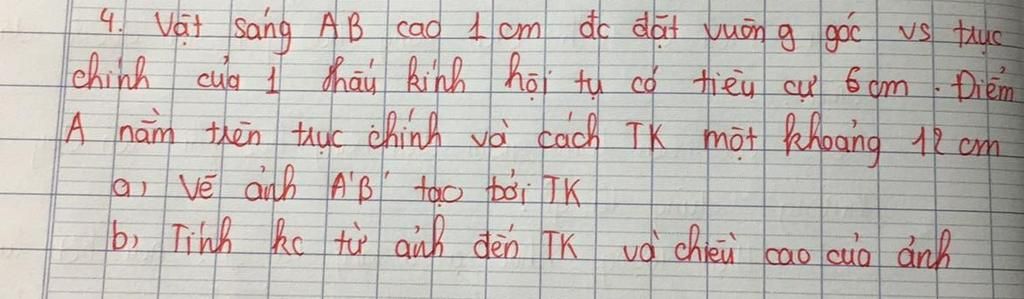 4. Vật sáng AB cao 1 cm đc đặt vuông góc vs trục
chính của 1 thấu kính hội tụ có tiêu cự 6 cm. Điểm
A nằm trên trục chính và cách TK một khoảng 12 cm
a, Vẽ ảnh A'B' tạo bởi TK
b, Tính kc từ ảnh đến TK và chiều cao của ảnh